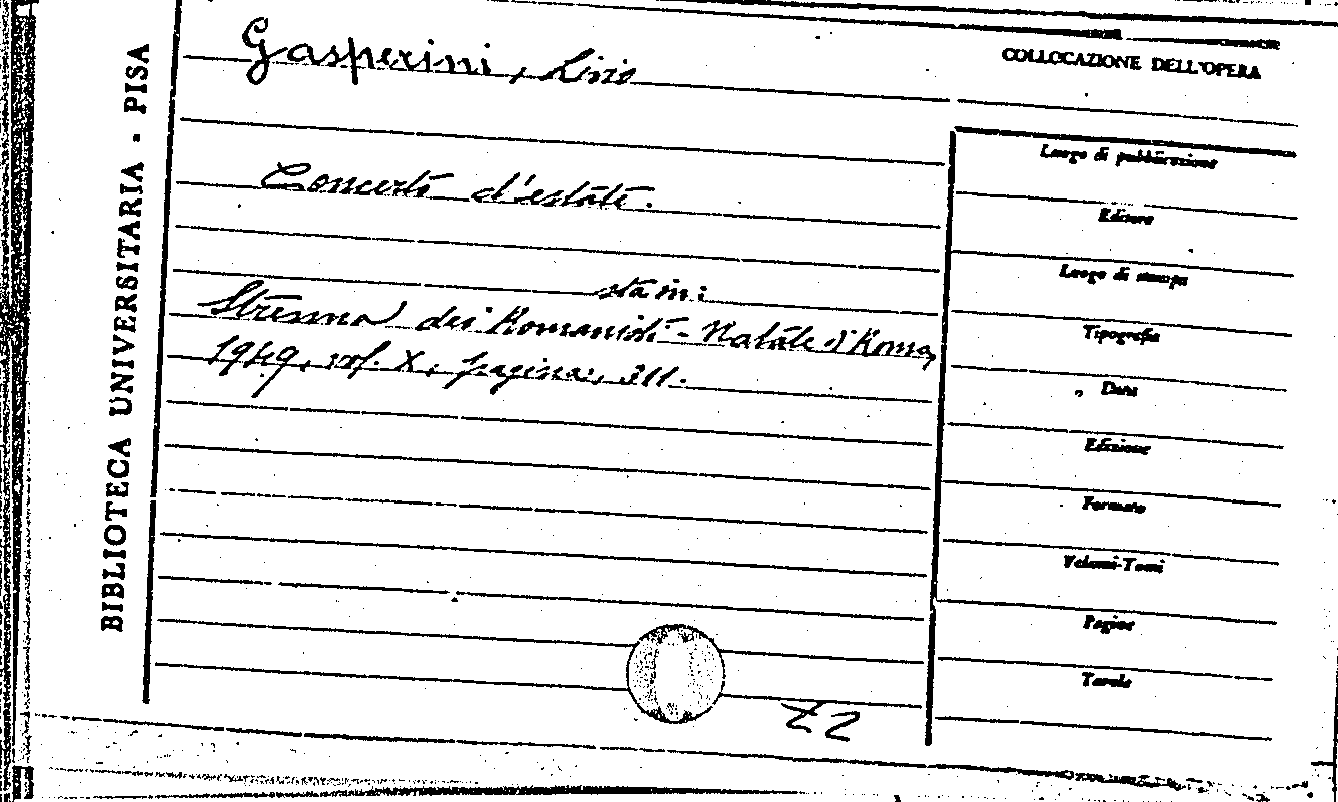 BIBLIOTECA UNIVERSITARIA - PISA
Gasperini, Livio
COLLOCAZIONE DELL'OPERA
Concerto d'estate.
sta in:
Strenna dei Romanisti - Natale di Roma,
1949, vol. X, pagina, 311.
Luogo di pubblicazione
Editore
Luogo di stampa
Tipografia
„ Data
Edizione
Formato
Volumi-Tomi
Pagine
Tavole